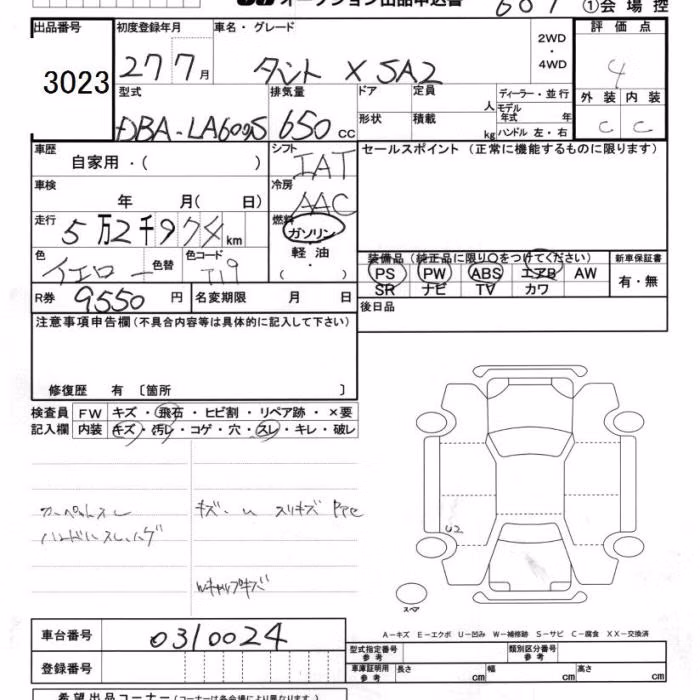 オークション出品申込書 607 ①会場控
出品番号 初度登録年月 車名・グレード 評価点
3023 27 7月 タント X SA2 2WD・4WD 4
型式 排気量 ドア 定員 人 ディーラー・並行 外装 内装
DBA-LA600S 650cc 形状 積載 kg モデル年式 年 ハンドル 左・右 C C
車歴 シフト セールスポイント (正常に機能するものに限ります)
自家用・( ) IAT
車検 年 月( 日) 冷房 AAC
走行 5万2千974km 燃料 ガソリン
色 イエロー 色替 色コード T19 軽油 ・( )
装備品 (純正品に限り○をつけてください) 新車保証書
PS PW ABS エアB AW 有・無
SR ナビ TV カワ
R券 9550円 名変期限 月 日 後日品
注意事項申告欄 (不具合内容等は具体的に記入して下さい)
修復歴 有 〔箇所 〕
検査員 FW キズ・飛石・ヒビ割・リペア跡・×要
記入欄 内装 キズ・汚レ・コゲ・穴・スレ・キレ・破レ
カーペットスレ キズ・
U2
Wキャップキズ
スペア
車台番号 0310024
A-キズ E-エクボ U-凹み W-補修跡 S-サビ C-腐食 XX-交換済
型式指定番号 参考 類別区分番号 参考
登録番号 車庫証明用 参考 長さ cm 幅 cm 高さ cm
希望出品コーナー (コーナーは各会場により異なります)